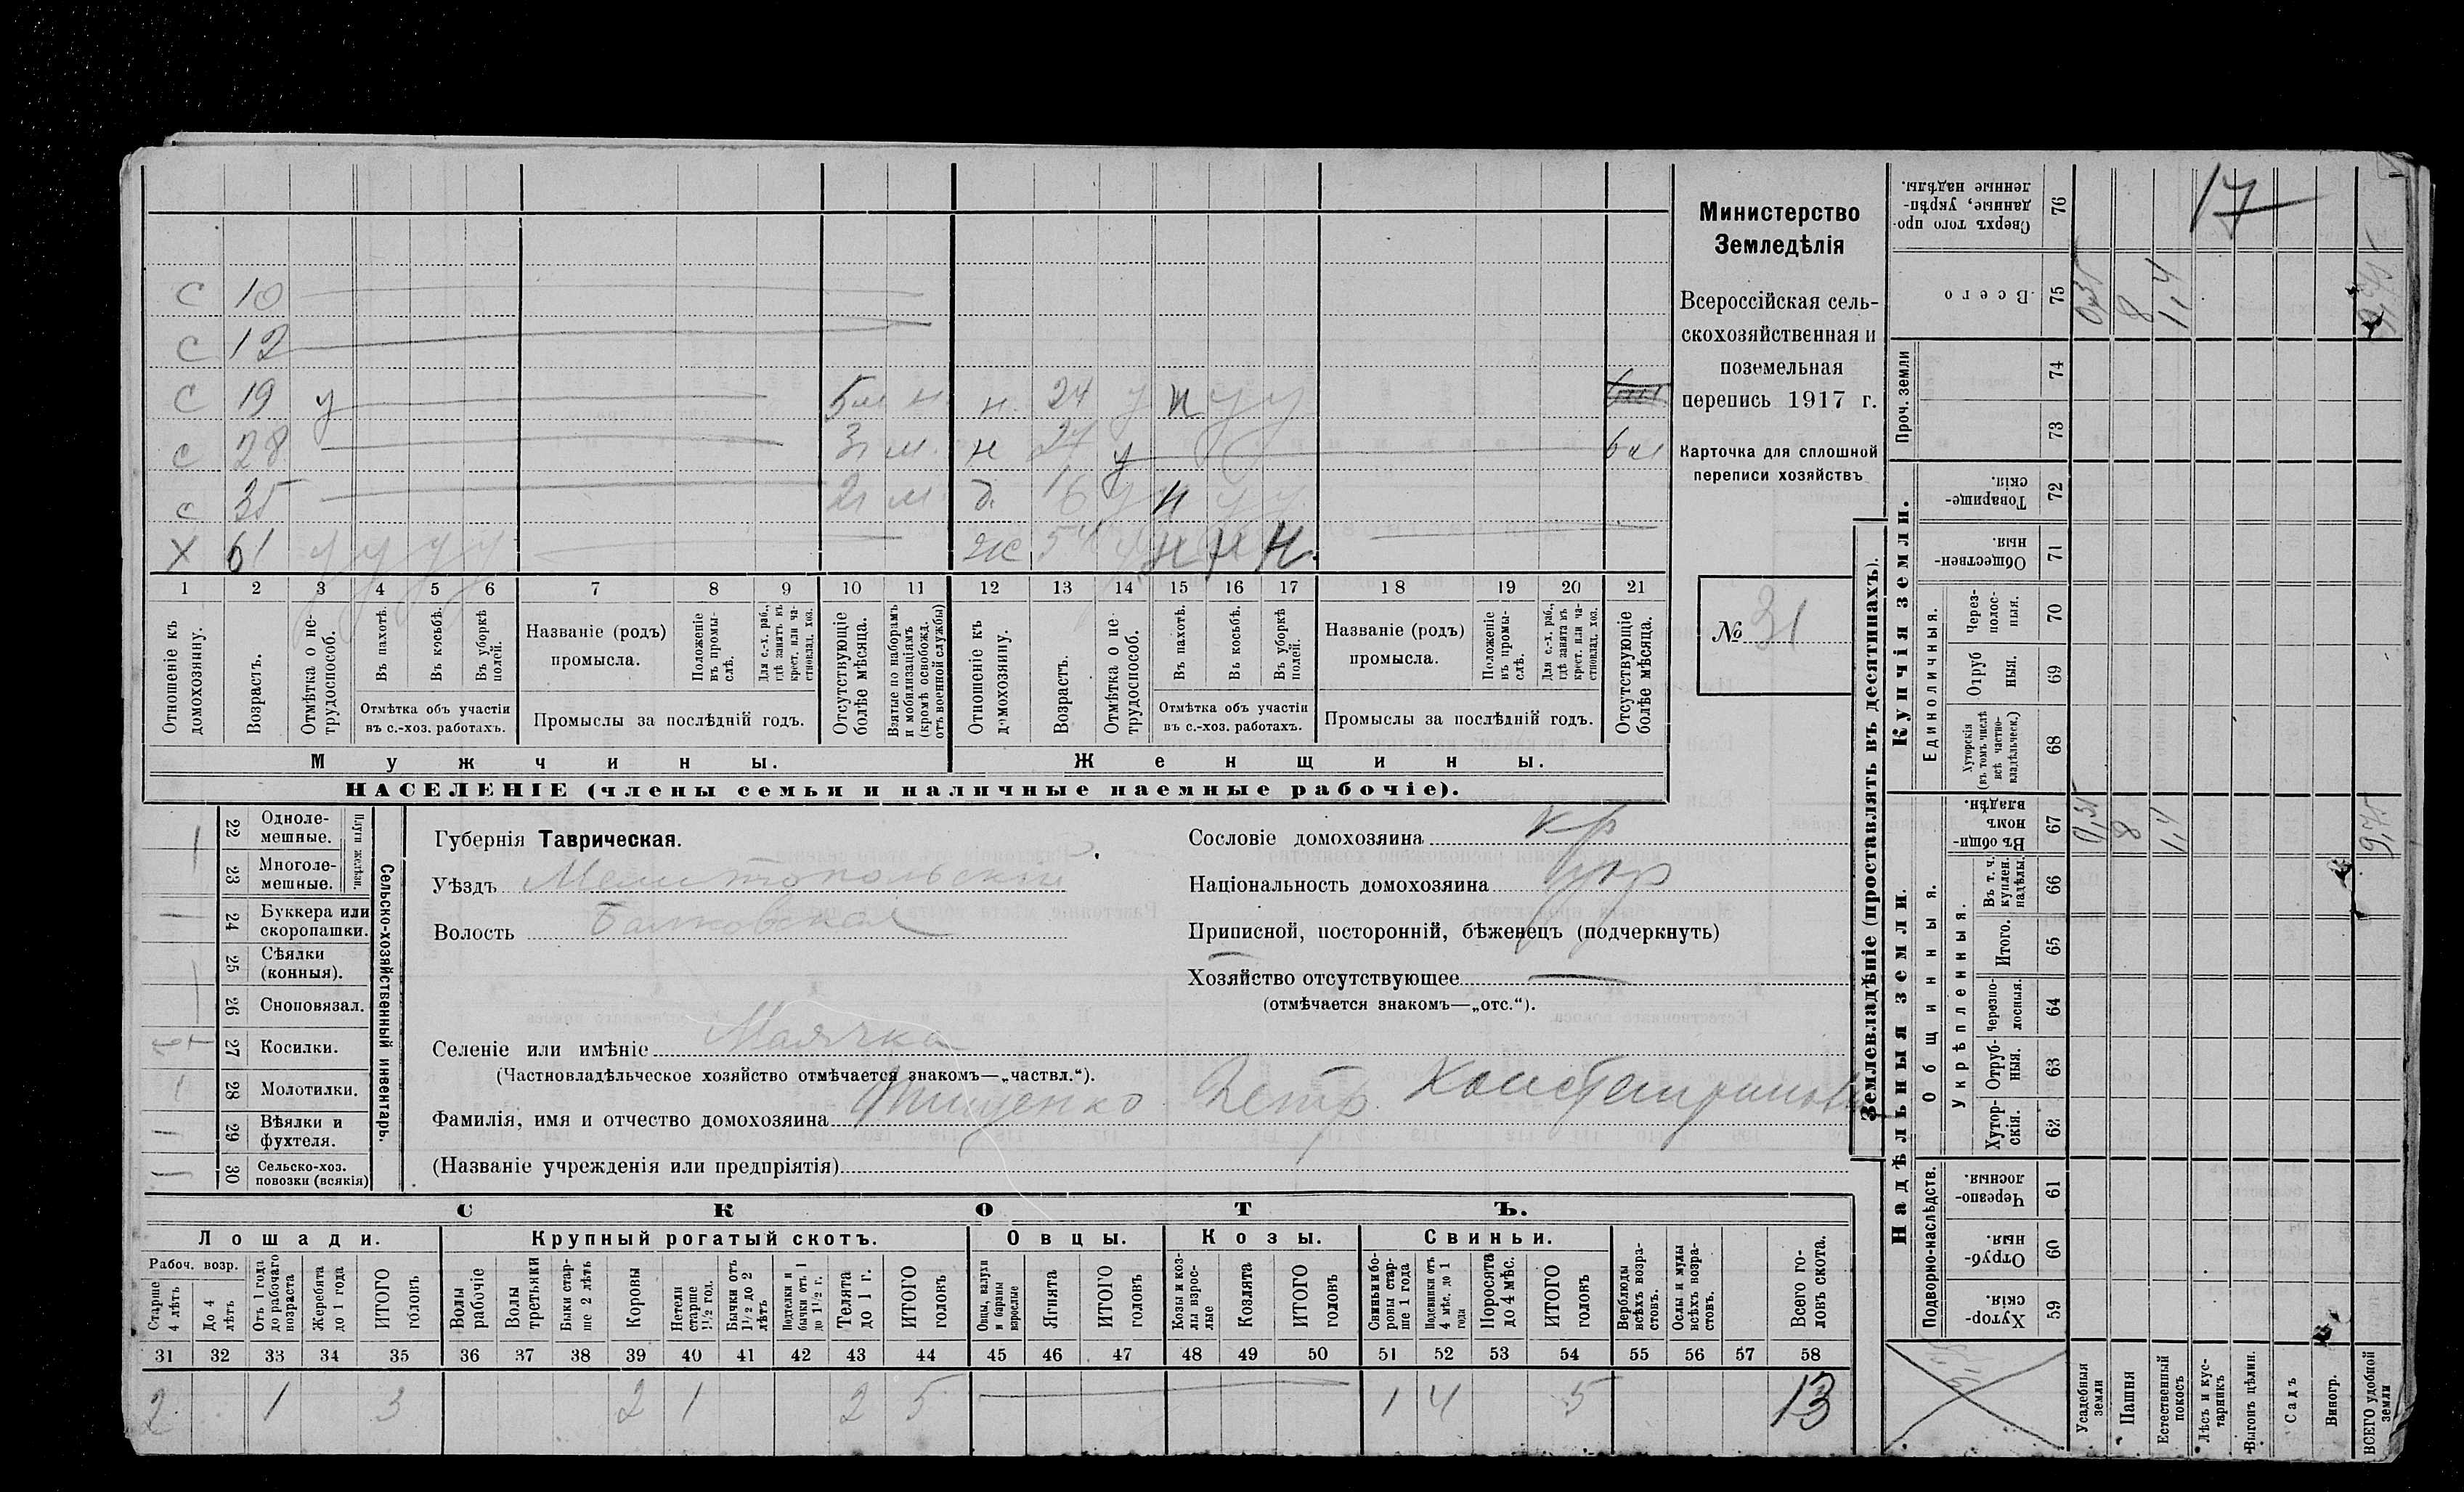 17
Министерство
Земледѣлія
Всероссійская сель-
скохозяйственная и
поземельная
перепись 1917 г.
Карточка для сплошной
переписи хозяйствъ
№ 31
С 10
С 12
С 19 у 5 м н. 24 у н у у
С 28 3 м. н 27 у 6 м
С 35 2 м. д. 16 у н у у
Х 61 у у у у ж 54 у н н н
1 2 3 4 5 6 7 8 9 10 11 12 13 14 15 16 17 18 19 20 21
Отношеніе къ домохозяину.
Возрастъ.
Отмѣтка о не-трудоспособ.
Въ пахотѣ.
Въ косьбѣ.
Въ уборкѣ полей.
Отмѣтка объ участіи
въ с.-хоз. работахъ.
Названіе (родъ)
промысла.
Положеніе въ промы-слѣ.
Для с.-х. раб., гдѣ занятъ къ крест. или ча-стновлад. хоз.
Промыслы за послѣдній годъ.
Отсутствующіе болѣе мѣсяца.
Взятые по наборамъ и мобилизаціямъ (кромѣ освобожд. отъ военной службы)
Отношеніе къ домохозяину.
Возрастъ.
Отмѣтка о не трудоспособ.
Въ пахотѣ.
Въ косьбѣ.
Въ уборкѣ полей.
Отмѣтка объ участіи
въ с.-хоз. работахъ.
Названіе (родъ)
промысла.
Положеніе въ промы-слѣ.
Для с.-х. раб., гдѣ занята въ крест. или ча-стновлад. хоз.
Промыслы за послѣдній годъ.
Отсутствующіе болѣе мѣсяца.
Мужчины. Женщины.
НАСЕЛЕНІЕ (члены семьи и наличные наемные рабочіе).
Сельско-хозяйственный инвентарь.
Плуги желѣзн.
22 Одноле-мешные.
23 Многоле-мешные.
24 Буккера или скоропашки.
25 Сѣялки (конныя).
26 Сноповязал.
27 Косилки.
28 Молотилки.
29 Вѣялки и фухтеля.
30 Сельско-хоз. повозки (всякія)
Губернія Таврическая.
Уѣздъ Мелитопольскій
Волость Балковская
Сословіе домохозяина кр
Національность домохозяина укр
Приписной, посторонній, бѣженецъ (подчеркнуть)
Хозяйство отсутствующее —
(отмѣчается знакомъ—„отс.“).
Селеніе или имѣніе Маячка
(Частновладѣльческое хозяйство отмѣчается знакомъ—„частвл.“).
Фамилія, имя и отчество домохозяина Петр Константинов
(Названіе учрежденія или предпріятія)
СКОТЪ.
Лошади. Крупный рогатый скотъ. Овцы. Козы. Свиньи.
Рабоч. возр.
Старше 4 лѣтъ
До 4 лѣтъ
Отъ 1 года до рабочаго возраста
Жеребята до 1 года
ИТОГО головъ
Волы рабочіе
Волы третьяки
Быки стар-ше 2 лѣтъ
Коровы
Нетели старше 1½ год.
Бычки отъ 1½ до 2 лѣтъ
Подтелки и бычки отъ 1 до 1½ г.
Телята до 1 г.
ИТОГО головъ
Овцы, валухи и бараны взрослые
Ягнята
ИТОГО головъ
Козы и коз-лы взрос-лые
Козлята
ИТОГО головъ
Свиньи и бо-ровы стар-ше 1 года
Подсвинки отъ 4 мѣс. до 1 года
Поросята до 4 мѣс.
ИТОГО головъ
Верблюды всѣхъ возра-стовъ.
Ослы и мулы всѣхъ возра-стовъ.
Всего го-ловъ скота.
31 32 33 34 35 36 37 38 39 40 41 42 43 44 45 46 47 48 49 50 51 52 53 54 55 56 57 58
2 1 3 2 1 2 5 1 4 5 13
Землевладѣніе (проставлять въ десятинахъ).
Купчія земли.
Надѣльныя земли.
Сверхъ того про-данные, укрѣп-ленные надѣлы. 76
Всего 75 0,35 8 1,4 9,75
Проч. земли 74 73
Товарище-скія. 72
Обществен-ныя. 71
Единоличныя.
Через-полос-ныя. 70
Отруб ныя. 69
Хуторскія (въ томъ числѣ всѣ частно-владѣльческ.) 68
Въ общин-номъ владѣн. 67 0,35 8 1,4 9,75
Общинныя.
Укрѣпленныя.
Въ т. ч. куплен. надѣлы. 66
Итого. 65
Черезпо-лосныя. 64
Отруб-ныя. 63
Хутор-скія. 62
Подворно-наслѣдств.
Черезпо-лосныя. 61
Отруб-ныя. 60
Хутор-скія. 59
Усадебныя земли
Пашня
Естественный покосъ
Лѣсъ и кус-тарникъ
Выгонъ цѣлин.
Садъ
Виногр.
ВСЕГО удобной земли